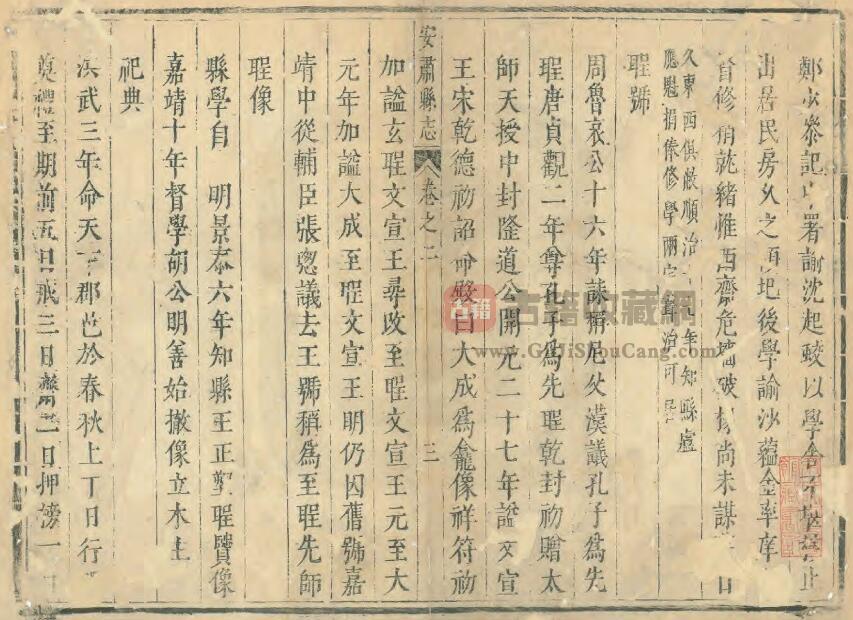 鄭 記 署諭沈起蛟以學舍 止
出居民房久之 圯後學諭沙蘊金率庠
修稍就緒惟西齋危墻破 尚未謀 日
久東西俱敝順治 年知縣盧
應 捐俸修學兩 治可居
聖號
周魯哀公十六年誄稱尼父漢議孔子爲先
聖唐貞觀二年尊孔子爲先聖乾封初贈太
師天授中封隆道公開元二十七年謚文宣
王宋乾德初詔命殿曰大成爲龕像祥符初
安肅縣志 卷之二 三
加謚玄聖文宣王尋改至聖文宣王元至大
元年加謚大成至聖文宣王明仍因舊號嘉
靖中從輔臣張璁議去王號稱爲至聖先師
聖像
縣學自 明景泰六年知縣王正 聖賢像
嘉靖十年督學胡公明善始撤像立木主
祀典
洪武三年命天下郡邑於春秋上丁日行
奠禮至期前五日戒三日齋 日押榜一
古籍 古籍收藏網
www.GuJiShouCang.com